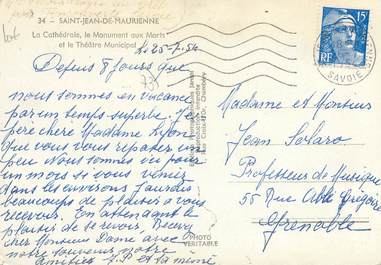 34 - SAINT-JEAN-DE-MAURIENNE
La Cathédrale, le Monument aux Morts
et le Théâtre Municipal
Le 25-7-54
Depuis 8 jours que
nous sommes en vacance
par un temps superbe J'es
père chere Madame
que vous vous reposer un
peu Nous sommes ici pour
un mois si vous veniez
dans les environs J'aurais
beaucoups de plaisir a vous
recevoir. En attendant le
plaisir de se revoir, Recevez
cher Monsieur Dame avec
notre souvenir notre
amitiés J.P et la mémé
PHOTO
VERITABLE
15
RF
SAVOIE
Madame et Monsieur
Jean Solaro
Professeur de Musique
55 Rue Abbé Grégoire
Grenoble